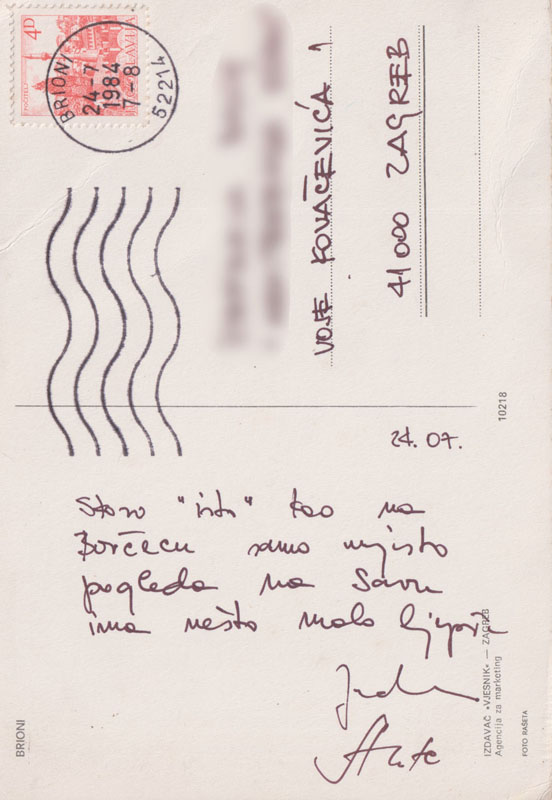 4D
POČITELJ
JUGOSLAVIJA
BRIONI
24-7
1984
7-8
52214
VOJE KOVAČEVIĆA 1
41000 ZAGREB
10218
24.07.
Skoro "isto" kao na
Borčecu samo mjesto
pogleda na Savu
ima nešto malo ljepših
Ante
BRIONI
IZDAVAČ »VJESNIK« — ZAGREB
Agencija za marketing
FOTO RAŠETA